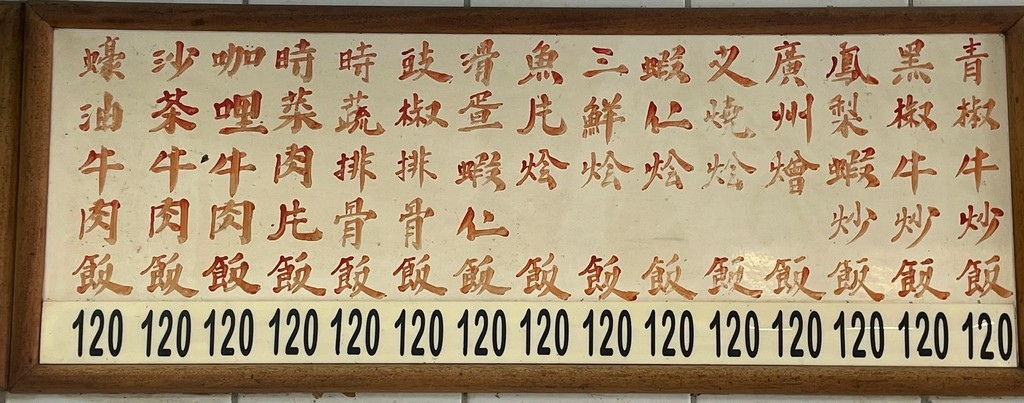 青椒牛炒飯
120
黑椒牛炒飯
120
鳳梨蝦炒飯
120
廣州燴飯
120
叉燒烩飯
120
蝦仁烩飯
120
三鮮烩飯
120
魚片烩飯
120
滑蛋蝦仁飯
120
豉椒排骨飯
120
時蔬排骨飯
120
時菜肉片飯
120
咖哩牛肉飯
120
沙茶牛肉飯
120
蠔油牛肉飯
120